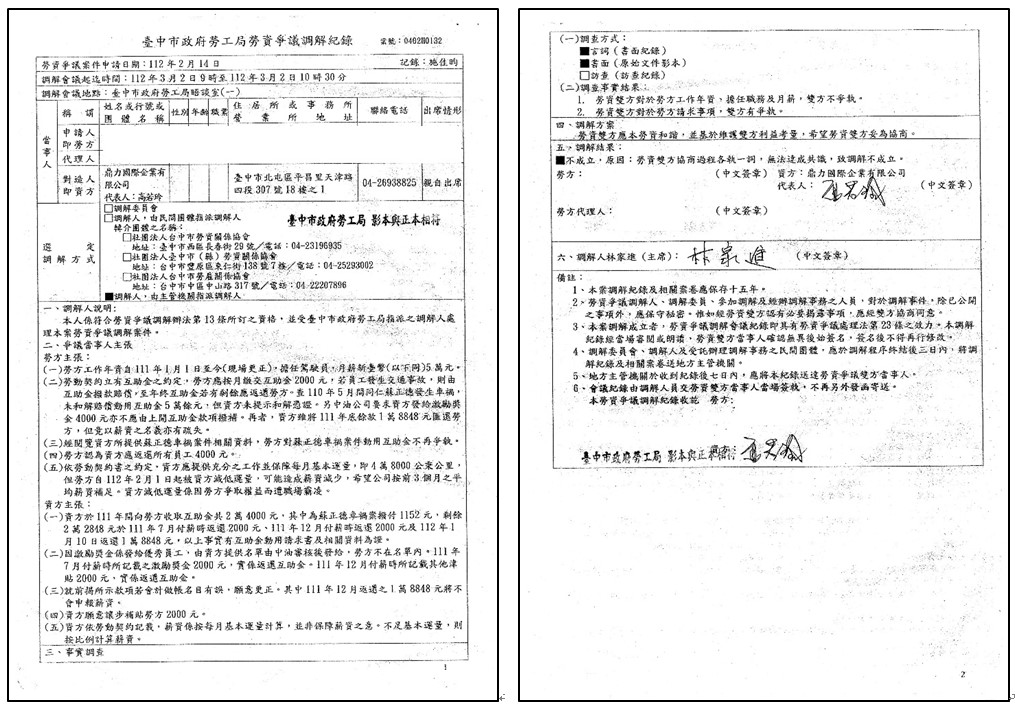 臺中市政府勞工局勞資爭議調解紀錄 案號：0402H0132
勞資爭議案件申請日期：112年2月14日 記錄：施佳昀
調解會議起迄時間：112年3月2日9時至112年3月2日10時30分
調解會議地點：臺中市政府勞工局晤談室(一)
當事人
稱謂 姓名或行號或團體名稱 性別 年齡 職業 住居所或事務所營業所地址 聯絡電話 出席情形
申請人即勞方
代理人
對造人即資方 鼎力國際企業有限公司 代表人：高若玲 臺中市北屯區平昌里天津路四段307號18樓之1 04-26938825 親自出席
選定調解方式
□調解委員會
□調解人，由民間團體指派調解人
臺中市政府勞工局 影本與正本相符
轉介團體之名稱：
□社團法人台中市勞資關係協會
地址：臺中市西區長春街29號／電話：04-23196935
□社團法人臺中市（縣）勞資關係協會
地址：台中市豐原區東仁街138號7樓／電話：04-25293002
□社團法人台中市勞雇關係協會
地址：台中市中區中山路317號／電話：04-22207896
■調解人，由主管機關指派調解人
一、調解人說明：
本人係符合勞資爭議調解辦法第13條所訂之資格，並受臺中市政府勞工局指派之調解人處
理本案勞資爭議調解案件。
二、爭議當事人主張
勞方主張：
(一)勞方工作年資自111年1月1日至今(現場更正)，擔任駕駛員，月薪新臺幣(以下同)5萬元。
(二)勞動契約立有互助金之約定，勞方應按月繳交互助金2000元，若員工發生交通事故，則由
互助金撥款賠償，至年終互助金若有剩餘應返還勞方。查110年5月間同仁蘇正德發生車禍，
未和解賠償動用互助金5萬餘元，但資方未提示和解憑證。另中油公司要求資方發給激勵獎
金4000元亦不應由上開互助金款項撥補。再者，資方雖將111年底餘款1萬8848元匯還勞
方，但竟以薪資之名義亦有疏失。
(三)經閱覽資方所提供蘇正德車禍案件相關資料，勞方對蘇正德車禍案件動用互助金不再爭執。
(四)勞方認為資方應返還所有員工4000元。
(五)依勞動契約書之約定，資方應提供充分之工作並保障每月基本運量，即4萬8000公秉公里，
但勞方自112年2月1日起被資方減低運量，可能造成薪資減少，希望公司按前3個月之平
均薪資補足。資方減低運量係因勞方爭取權益而遭職場霸凌。
資方主張：
(一)資方於111年間向勞方收取互助金共2萬4000元，其中為蘇正德車禍案撥付1152元，剩餘
2萬2848元於111年7月付薪時返還2000元、111年12月付薪時返還2000元及112年1
月10日返還1萬8848元，以上事實有互助金動用請求書及相關資料為證。
(二)因激勵獎金係發給優秀員工，由資方提供名單由中油審核後發給，勞方不在名單內。111年
7月付薪時所記載之激勵獎金2000元，實係返還互助金。111年12月付薪時所記載其他津
貼2000元，實係返還互助金。
(三)就前揭所示款項若會計做帳名目有誤，願意更正。其中111年12月返還之1萬8848元將不
會申報薪資。
(四)資方願意讓步補貼勞方2000元。
(五)資方依勞動契約記載，薪資係按每月基本運量計算，並非保障薪資之意。不足基本運量，則
按比例計算薪資。
三、事實調查
1
(一)調查方式：
■言詞（書面紀錄）
■書面（原始文件影本）
□訪查（訪查紀錄）
(二)調查事實結果：
1. 勞資雙方對於勞方工作年資，擔任職務及月薪，雙方不爭執。
2. 勞資雙方對於勞方請求事項，雙方有爭執。
四、調解方案
勞資雙方應本勞資和諧，並基於維護雙方利益考量，希望勞資雙方妥為協商。
五、調解結果：
■不成立，原因：勞資雙方協商過程各執一詞，無法達成共識，致調解不成立。
勞方： （中文簽章） 資方：鼎力國際企業有限公司
代表人： （中文簽章）
勞方代理人： （中文簽章）
六、調解人林家進（主席）： 林家進 （中文簽章）
備註：
1、本案調解紀錄及相關案卷應保存十五年。
2、勞資爭議調解人、調解委員、參加調解及經辦調解事務之人員，對於調解事件，除已公開
之事項外，應保守秘密。惟如經勞資雙方認有必要揭露事項，應經雙方協商同意。
3、本案調解成立者，勞資爭議調解會議紀錄即具有勞資爭議處理法第23條之效力。本調解
紀錄經當場審閱或朗讀，勞資雙方當事人確認無異後始簽名，簽名後不得再行修改。
4、調解委員會、調解人及受託辦理調解事務之民間團體，應於調解程序終結後三日內，將調
解紀錄及相關案卷送地方主管機關。
5、地方主管機關於收到紀錄後七日內，應將本紀錄送達勞資爭議雙方當事人。
6、會議紀錄由調解人員交勞資雙方當事人當場簽執，不再另外發函寄送。
本勞資爭議調解紀錄收訖 勞方：
臺中市政府勞工局 影本與正本相符
2